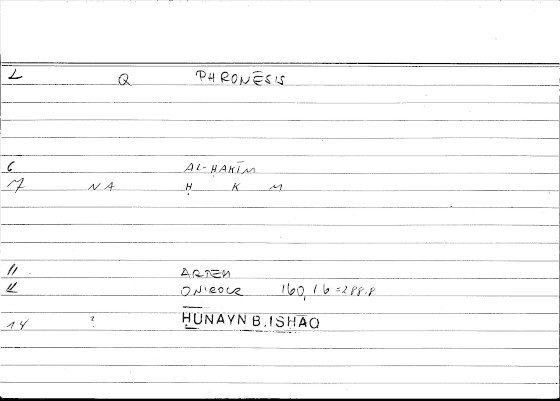 L Q PHRONĒSIS
6 AL-ḤAKĪM
7 NA Ḥ K M
11 ARTEM
12 ONIROCR 160,16=288.8
14 ? ḤUNAYN B. ISḤĀQ